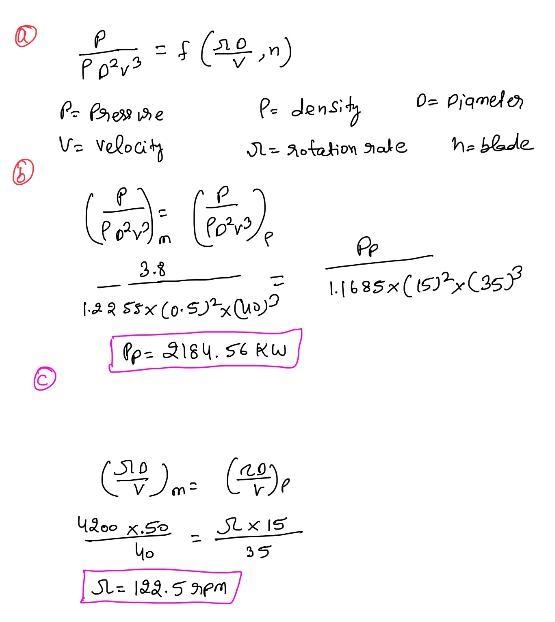 a
P / PD²V³ = f (ΩD / V , n)
P = Pressure P = density D = Diameter
V = velocity Ω = rotation rate n = blade
b
(P / PD²V³)m = (P / PD²V³)p
3.8 / 1.2255 x (0.5)² x (40)³ = Pp / 1.1685 x (15)² x (35)³
Pp = 2184.56 KW
c
(ΩD / V)m = (ΩD / V)p
4200 x .50 / 40 = Ω x 15 / 35
Ω = 122.5 rpm